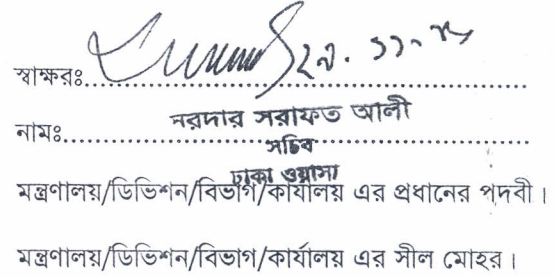 স্বাক্ষরঃ................ ২৯. ১১-
নামঃ................ সরদার সরাফত আলী
সচিব
ঢাকা ওয়াসা
মন্ত্রণালয়/ডিভিশন/বিভাগ/কার্যালয় এর প্রধানের পদবী।
মন্ত্রণালয়/ডিভিশন/বিভাগ/কার্যালয় এর সীল মোহর।